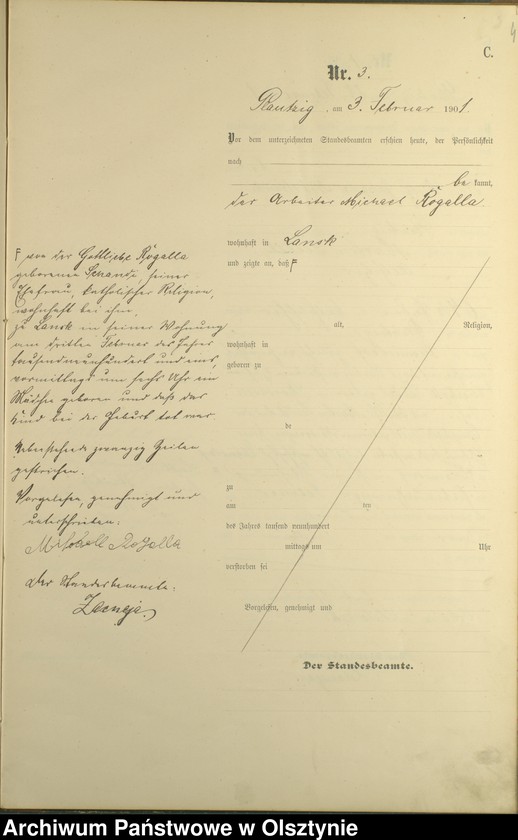 C.
Nr. 3.
Rentzig, am 3. Februar 1901.
Vor dem unterzeichneten Standesbeamten erschien heute, der Persönlichkeit
nach
be kannt,
der Arbeiter Michael Rogalla
wohnhaft in Lansk
und zeigte an, daß F
F von der Gottliebe Rogalla
geborenen seiner
Ehefrau, katholischer Religion,
wohnhaft bei ihm,
zu Lansk in seiner Wohnung
am dritten Februar des Jahres
tausendneunhundert und eins,
vormittags um sechs Uhr ein
Mädchen geboren und daß das
Kind bei der Geburt tot war
Nebenstehende zwanzig Zeilen
gestrichen.
Vorgelesen, genehmigt und
unterschrieben:
Michaell Rogalla
Der Standesbeamte.
alt, Religion,
wohnhaft in
geboren zu
de
zu
am ten
des Jahres tausend neunhundert
mittags um Uhr
verstorben sei
Vorgelesen, genehmigt und
Der Standesbeamte.
Archiwum Państwowe w Olsztynie